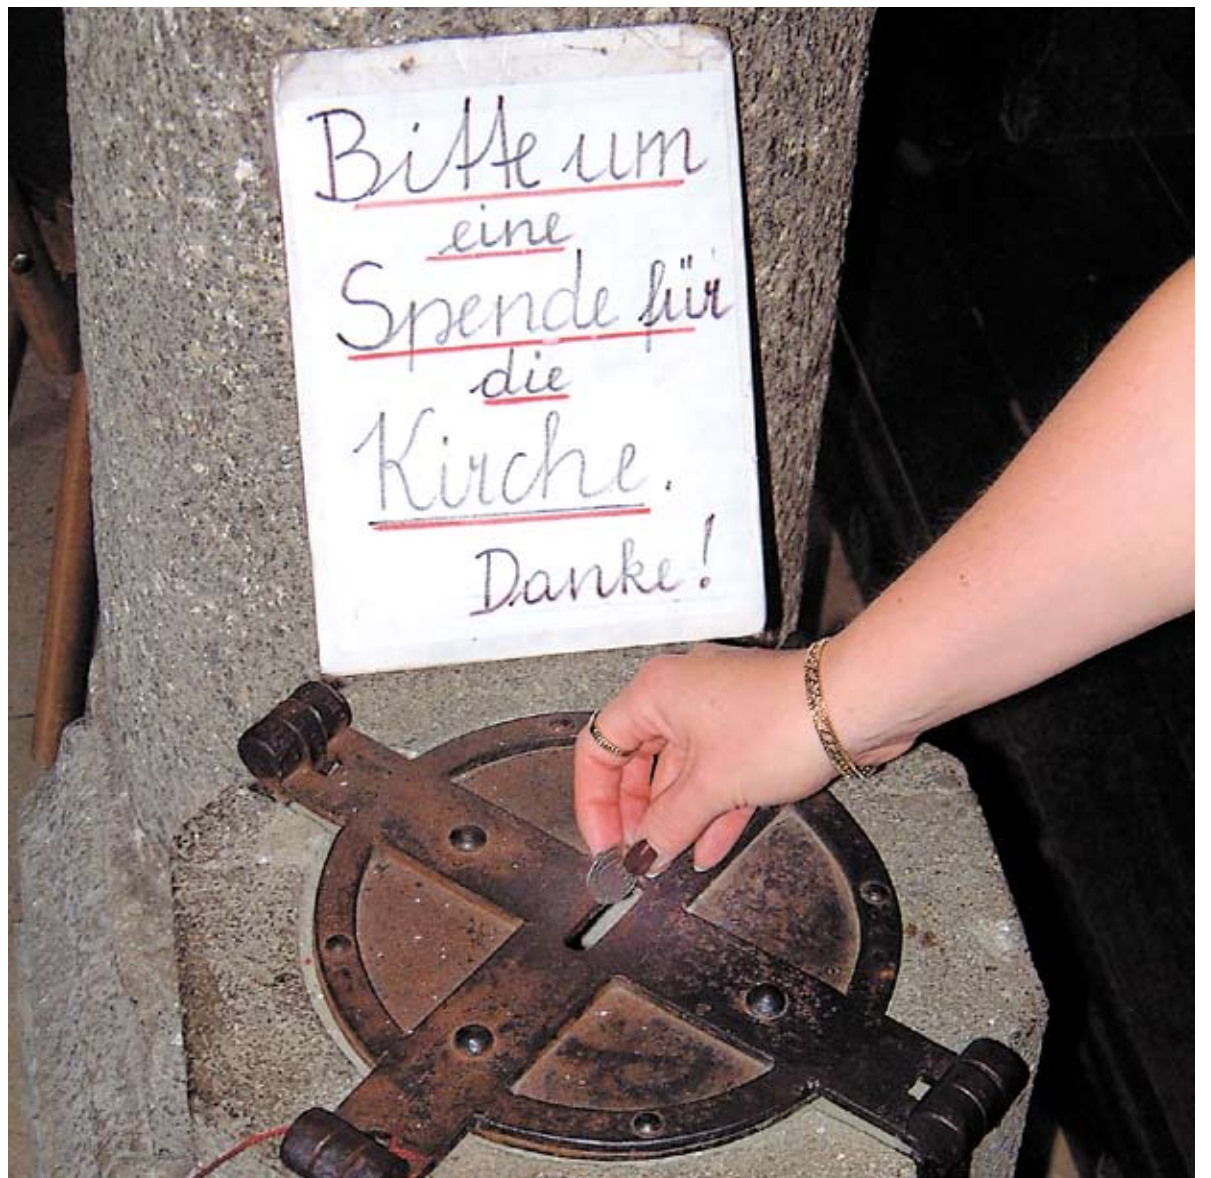 Bitte um
eine
Spende für
die
Kirche.
Danke!